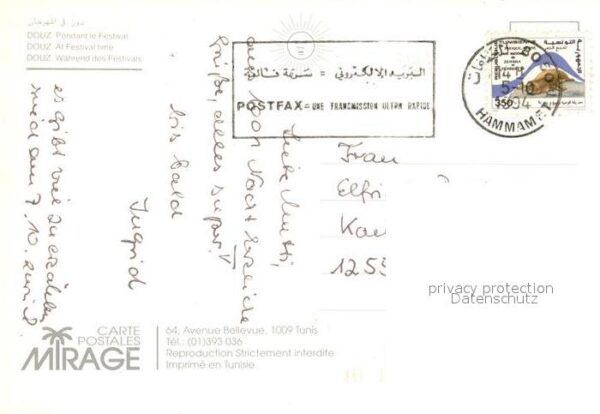 دوز في المهرجان
DOUZ Pendant le Festival
DOUZ At Festival time
DOUZ Während des Festivals
البريد الإلكتروني = سرعة فائقة
POSTFAX = UNE TRANSMISSION ULTRA RAPIDE
HAMMAM
5-10
94
350
Liebe Mutti,
aus 1001 Nacht herzliche
Grüße, alles super!
bis bald
Ingrid
es gibt viel zu erzählen
am 7.10. zurück
Frau
Elfri
Kae
1255
privacy protection
Datenschutz
CARTE
POSTALES
MIRAGE
64, Avenue Bellevue, 1009 Tunis
Tél.: (01)393 036
Reproduction Strictement interdite
Imprimé en Tunisie